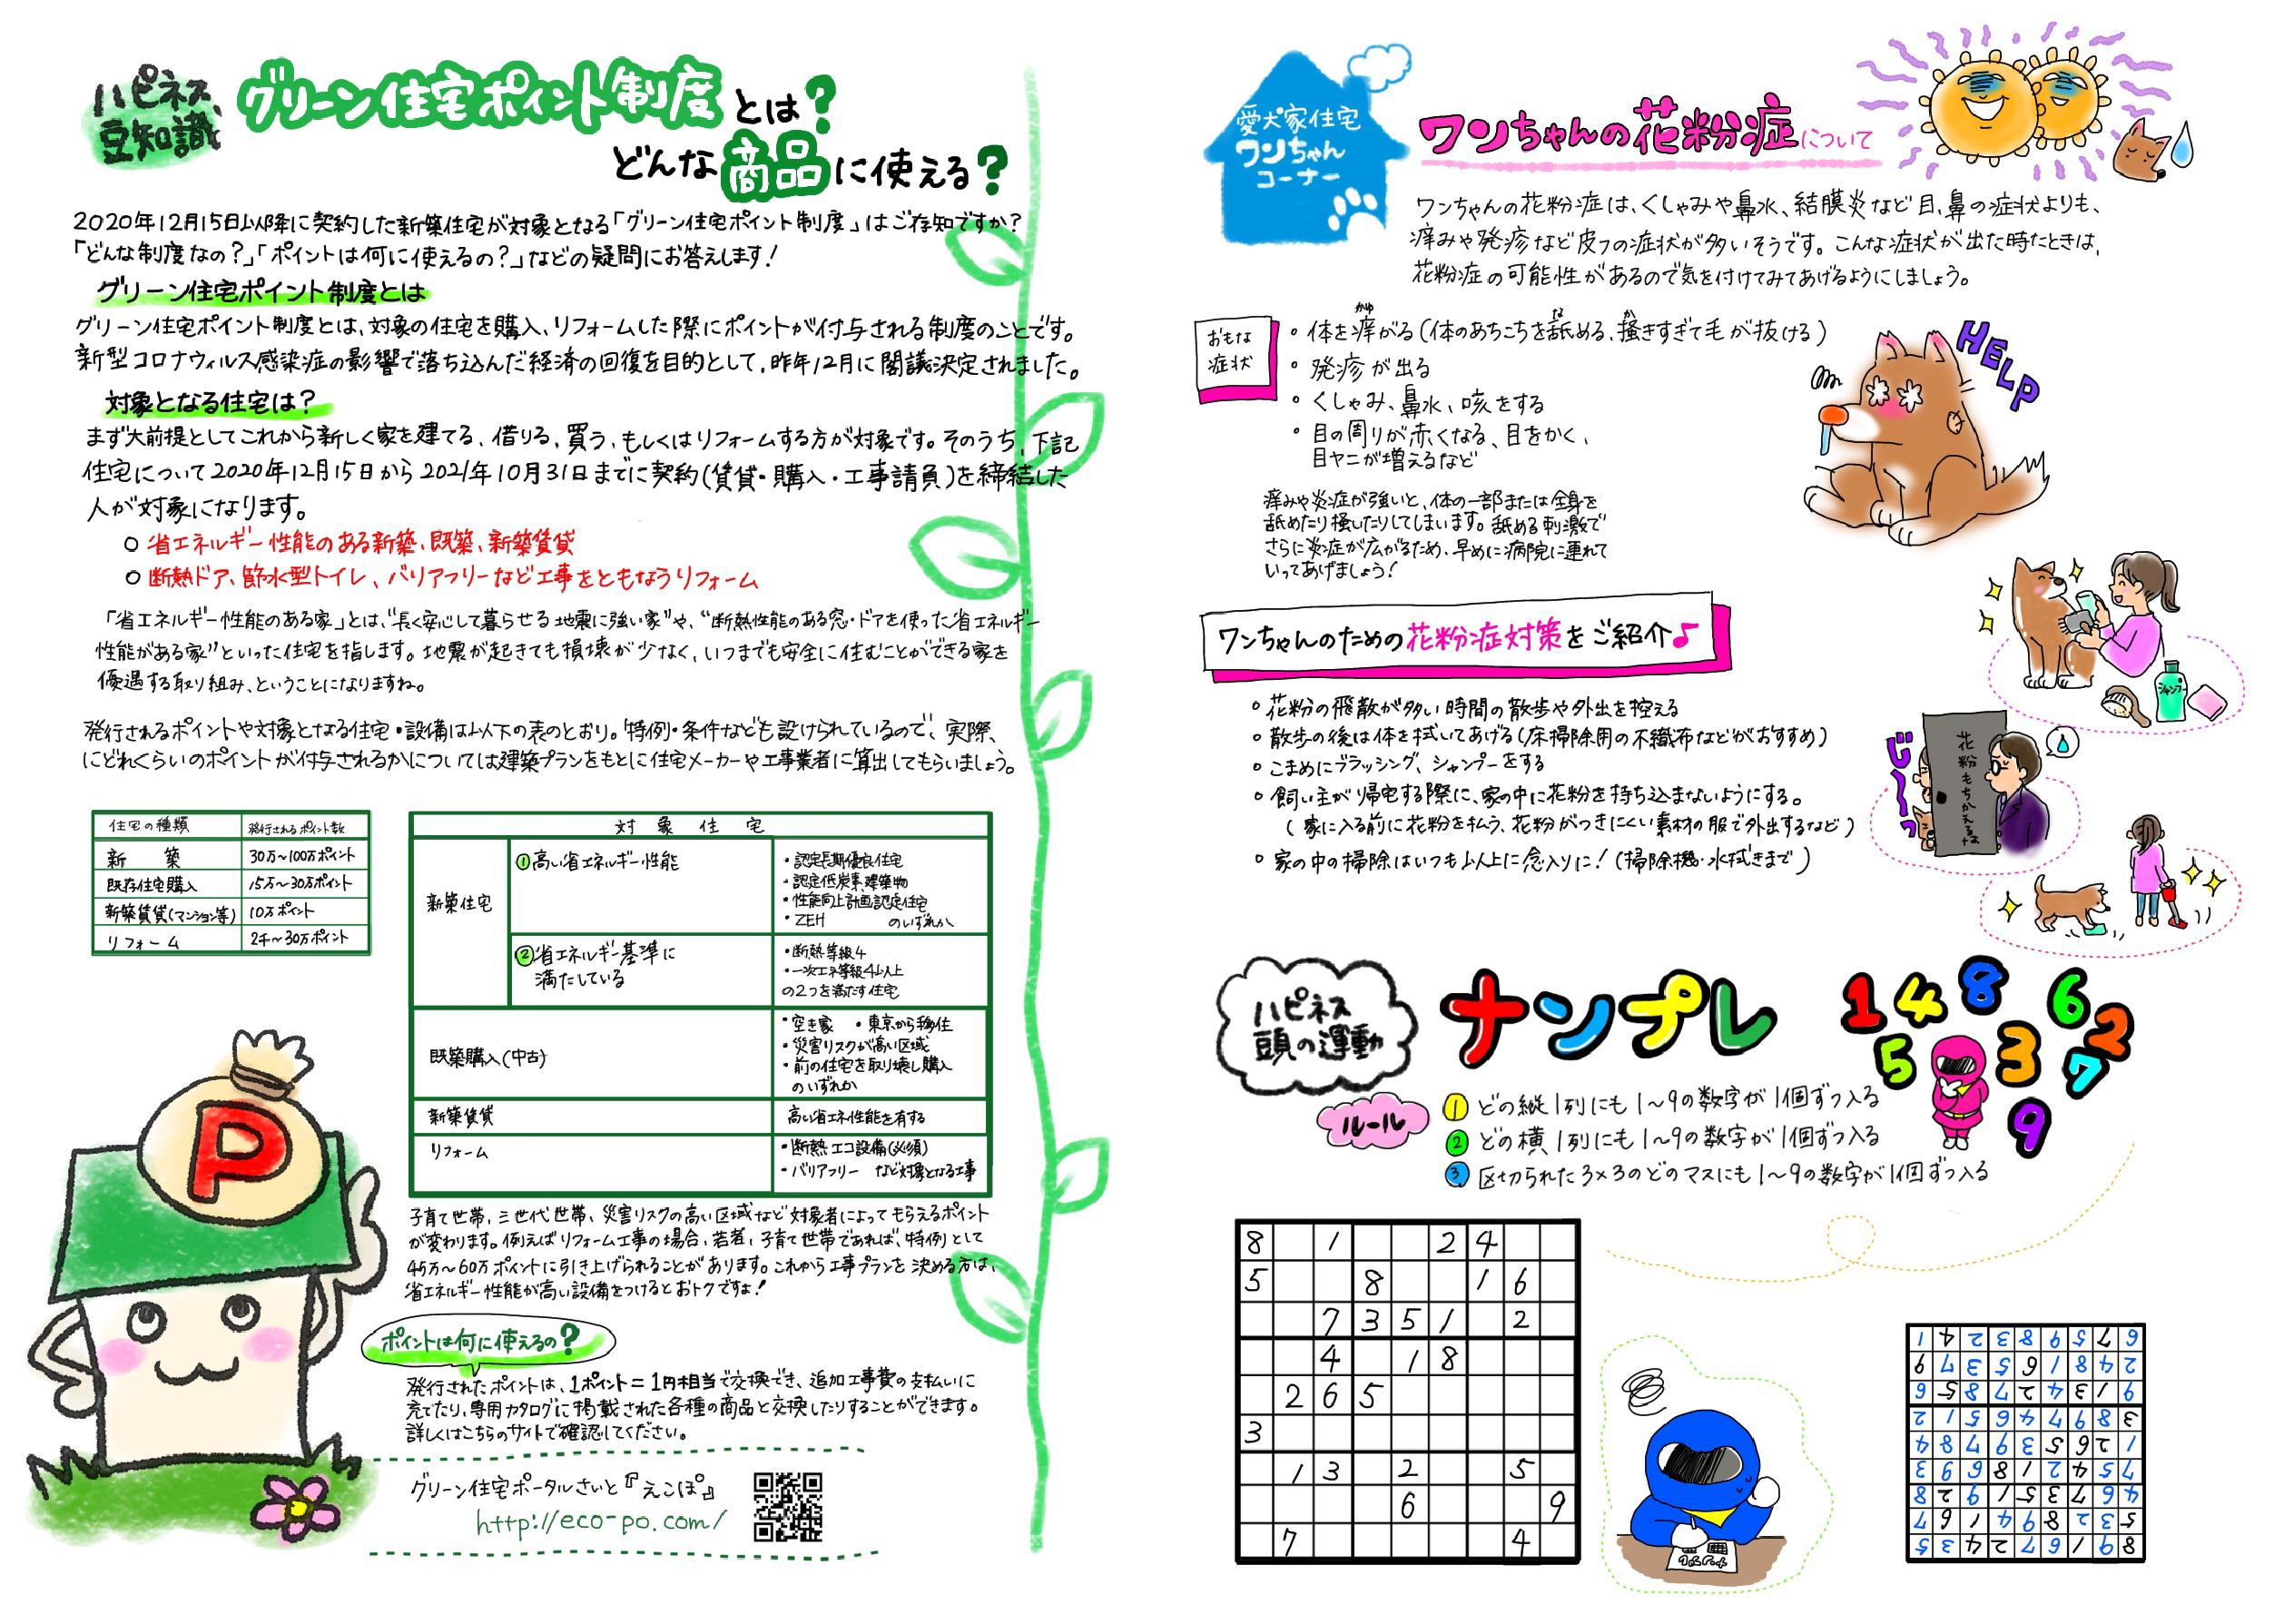 ハピネス
豆知識
グリーン住宅ポイント制度とは?
どんな商品に使える?
2020年12月15日以降に契約した新築住宅が対象となる「グリーン住宅ポイント制度」はご存知ですか?
「どんな制度なの?」「ポイントは何に使えるの?」などの疑問にお答えします!
グリーン住宅ポイント制度とは
グリーン住宅ポイント制度とは、対象の住宅を購入、リフォームした際にポイントが付与される制度のことです。
新型コロナウィルス感染症の影響で落ち込んだ経済の回復を目的として、昨年12月に閣議決定されました。
対象となる住宅は?
まず大前提としてこれから新しく家を建てる、借りる、買う、もしくはリフォームする方が対象です。そのうち、下記
住宅について2020年12月15日から2021年10月31日までに契約(賃貸・購入・工事請負)を締結した
人が対象になります。
○ 省エネルギー性能のある新築、既築、新築賃貸
○ 断熱ドア、節水型トイレ、バリアフリーなど工事をともなうリフォーム
「省エネルギー性能のある家」とは、“長く安心して暮らせる地震に強い家”や、“断熱性能のある窓・ドアを使った省エネルギー
性能がある家”といった住宅を指します。地震が起きても損壊が少なく、いつまでも安全に住むことができる家を
優遇する取り組み、ということになりますね。
発行されるポイントや対象となる住宅・設備は以下の表のとおり。特例・条件なども設けられているので、実際、
にどれくらいのポイントが付与されるかについては建築プランをもとに住宅メーカーや工事業者に算出してもらいましょう。
住宅の種類 発行されるポイント数
新築 30万~100万ポイント
既存住宅購入 15万~30万ポイント
新築賃貸(マンション等) 10万ポイント
リフォーム 2千~30万ポイント
対象住宅
新築住宅
①高い省エネルギー性能
・認定長期優良住宅
・認定低炭素建築物
・性能向上計画認定住宅
・ZEH のいずれか
②省エネルギー基準に
満たしている
・断熱等級4
・一次エネ等級4以上
の2つを満たす住宅
既築購入(中古)
・空き家 ・東京から移住
・災害リスクが高い区域
・前の住宅を取り壊し購入
のいずれか
新築賃貸 高い省エネ性能を有する
リフォーム
・断熱エコ設備(必須)
・バリアフリー など対象となる工事
子育て世帯、三世代世帯、災害リスクの高い区域など対象者によってもらえるポイント
が変わります。例えばリフォーム工事の場合、若者、子育て世帯であれば、特例として
45万~60万ポイントに引き上げられることがあります。これから工事プランを決める方は、
省エネルギー性能が高い設備をつけるとおトクですよ!
P
ポイントは何に使えるの?
発行されたポイントは、1ポイント=1円相当で交換でき、追加工事費の支払いに
充てたり、専用カタログに掲載された各種の商品と交換したりすることができます。
詳しくはこちらのサイトで確認してください。
グリーン住宅ポータルさいと『えこぽ』
http://eco-po.com/
愛犬家住宅
ワンちゃん
コーナー
ワンちゃんの花粉症について
ワンちゃんの花粉症は、くしゃみや鼻水、結膜炎など目、鼻の症状よりも、
痒みや発疹など皮フの症状が多いそうです。こんな症状が出た時たときは、
花粉症の可能性があるので気を付けてみてあげるようにしましょう。
おもな
症状
・体を痒がる(体のあちこちを舐める、掻きすぎて毛が抜ける)
かゆ な か
・発疹が出る
・くしゃみ、鼻水、咳をする
・目の周りが赤くなる、目をかく、
目ヤニが増えるなど
HELP
痒みや炎症が強いと、体の一部または全身を
舐めたり掻いたりしてしまいます。舐める刺激で
さらに炎症が広がるため、早めに病院に連れて
いってあげましょう!
ワンちゃんのための花粉症対策をご紹介♪
・花粉の飛散が多い時間の散歩や外出を控える
・散歩の後は体を拭いてあげる(床掃除用の不織布などがおすすめ)
・こまめにブラッシング、シャンプーをする
・飼い主が帰宅する際に、家の中に花粉を持ち込まないようにする。
(家に入る前に花粉を払う、花粉がつきにくい素材の服で外出するなど)
・家の中の掃除はいつも以上に念入りに!(掃除機・水拭きまで)
シャンプー
じ~っ
花粉もちかえるな
ハピネス
頭の運動
ナンプレ
1 4 8 6 2 5 3 7 9
ルール
① どの縦1列にも1~9の数字が1個ずつ入る
② どの横1列にも1~9の数字が1個ずつ入る
③ 区切られた3×3のどのマスにも1~9の数字が1個ずつ入る
8 1 2 4
5 8 1 6
7 3 5 1 2
4 1 8
2 6 5
3
1 3 2 5
6 9
7 4
8 9 1 6 7 2 4 3 5
5 3 2 8 9 4 1 6 7
4 6 7 3 5 1 9 2 8
7 5 4 2 1 8 6 9 3
1 2 6 5 3 9 7 8 4
3 8 9 7 4 6 5 1 2
9 1 3 4 2 7 8 5 6
2 4 8 1 6 5 3 7 9
6 7 5 9 8 3 2 4 1